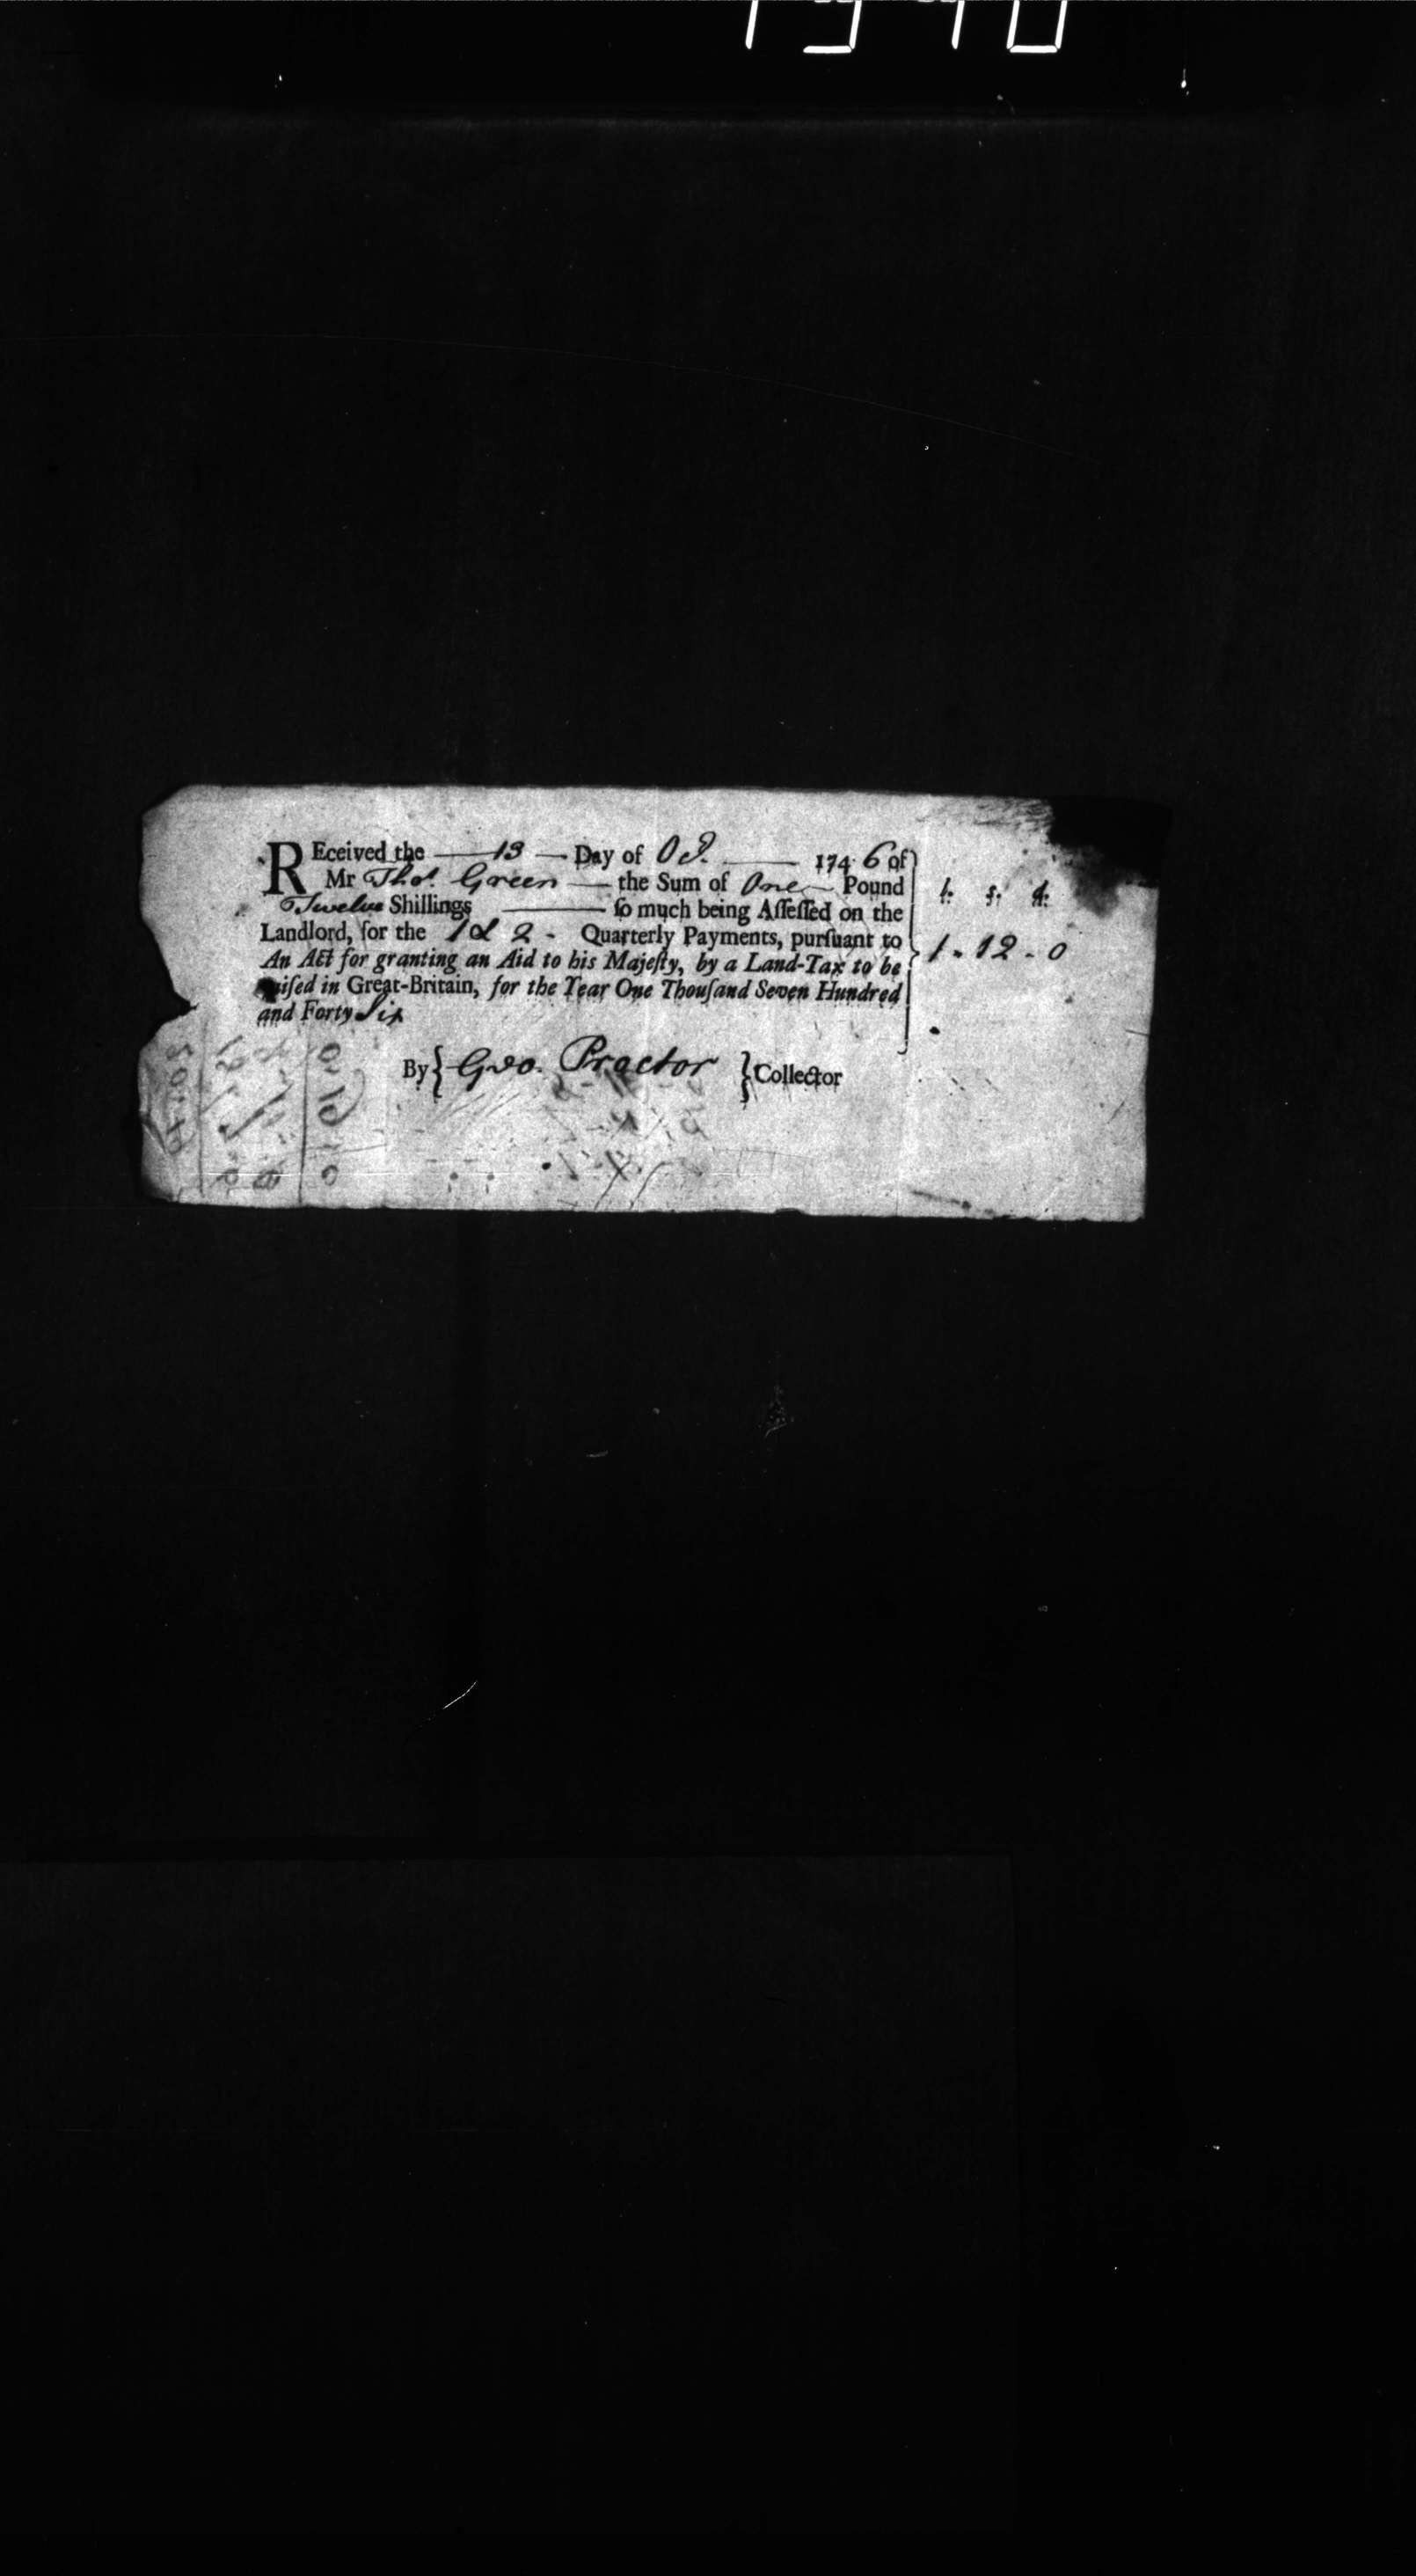 REceived the 13 Day of Oct. 1746 of
Mr Thos. Green the Sum of One Pound
Twelve Shillings so much being Assessed on the
Landlord, for the 1 & 2 Quarterly Payments, pursuant to
An Act for granting an Aid to his Majesty, by a Land-Tax to be
raised in Great-Britain, for the Year One Thousand Seven Hundred
and Forty Six
l. s. d.
1 . 12 . 0
By { Geo. Proctor } Collector